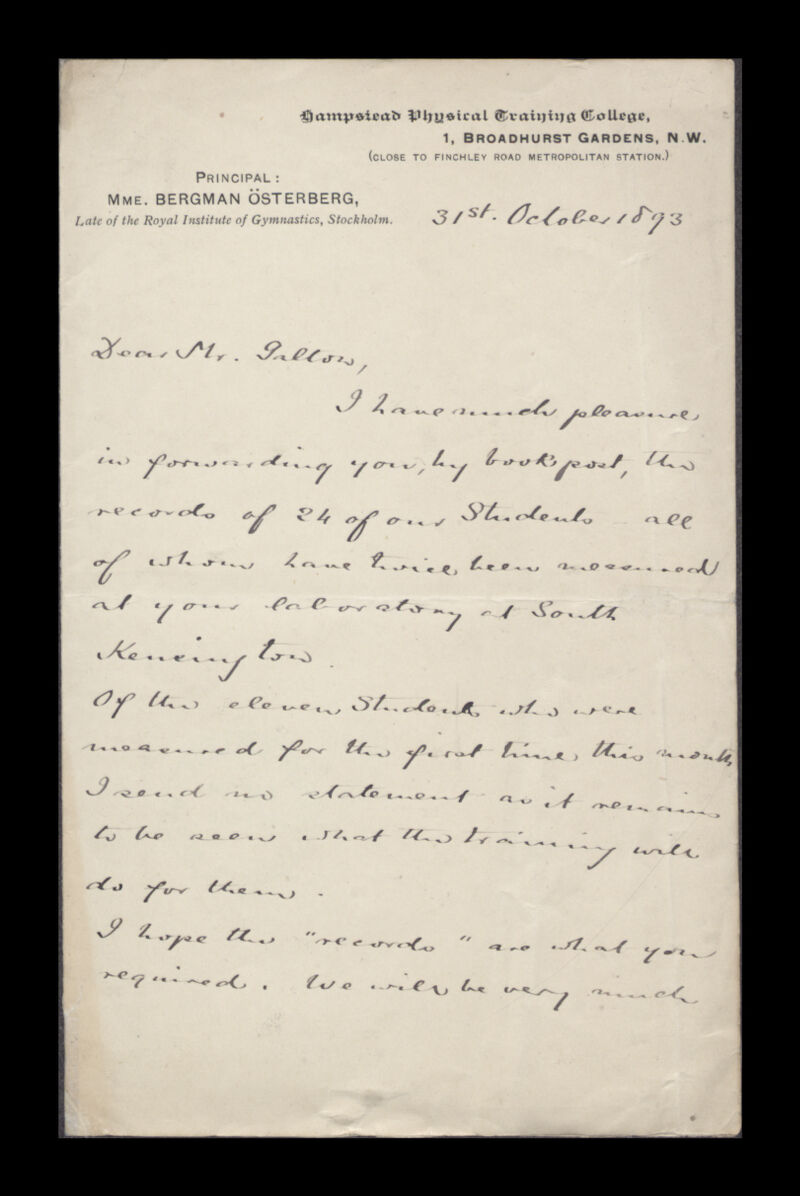 Hampstead Physical Training College,
1, BROADHURST GARDENS, N.W.
(CLOSE TO FINCHLEY ROAD METROPOLITAN STATION.)
PRINCIPAL:
MME. BERGMAN ÖSTERBERG,
Late of the Royal Institute of Gymnastics, Stockholm.
31st. October 1893
Dear Mr. Galton,
I have much pleasure
in forwarding you, by book post, the
records of 24 of our Students all
of whom have twice been measured
at your laboratory at South
Kensington.
Of the eleven Students who were
measured for the first time this month
I send no statement as it remains
to be seen what the training will
do for them.
I hope the "records" are what you
required. We will be very much